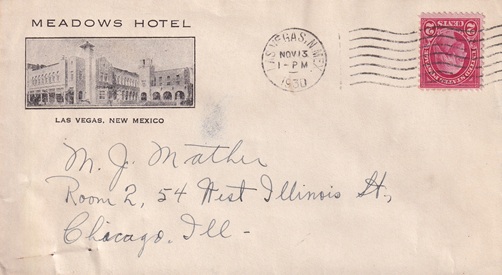 MEADOWS HOTEL
LAS VEGAS, NEW MEXICO
LAS VEGAS, N.MEX.
NOV 13
1-PM
1930
M. J. Mather
Room 2, 54 West Illinois St.,
Chicago, Ill-